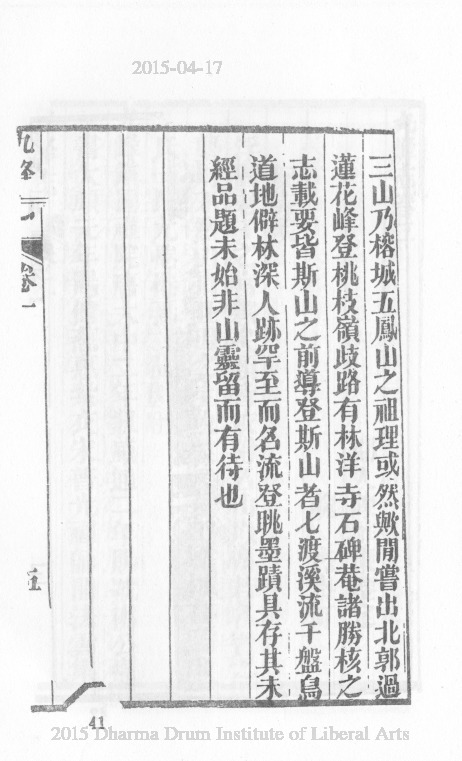 2015-04-17
三山乃榕城五鳳山之祖理或然歟閒嘗出北郭過
蓮花峰登桃枝嶺歧路有林洋寺石碑菴諸勝核之
志載要皆斯山之前導登斯山者七渡溪流千盤鳥
道地僻林深人跡罕至而名流登眺墨蹟具存其未
經品題未始非山靈留而有待也
卷一
五
41
2015 Dharma Drum Institute of Liberal Arts